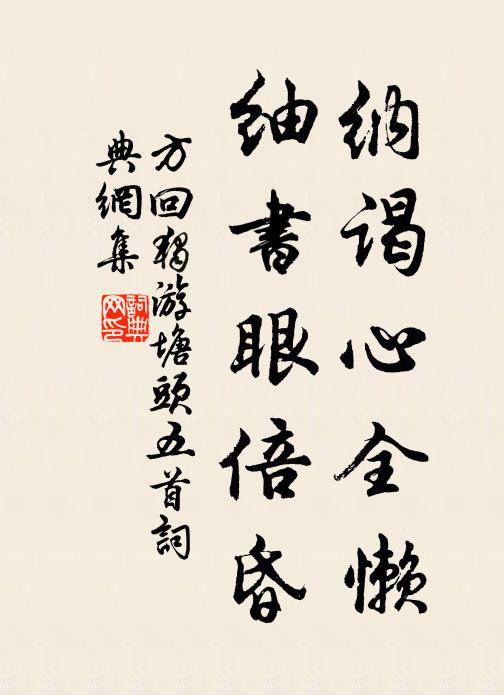 納謁心全懶
紬書眼倍昏
方回獨游塘頭五首詞
典網集
詞典
网印